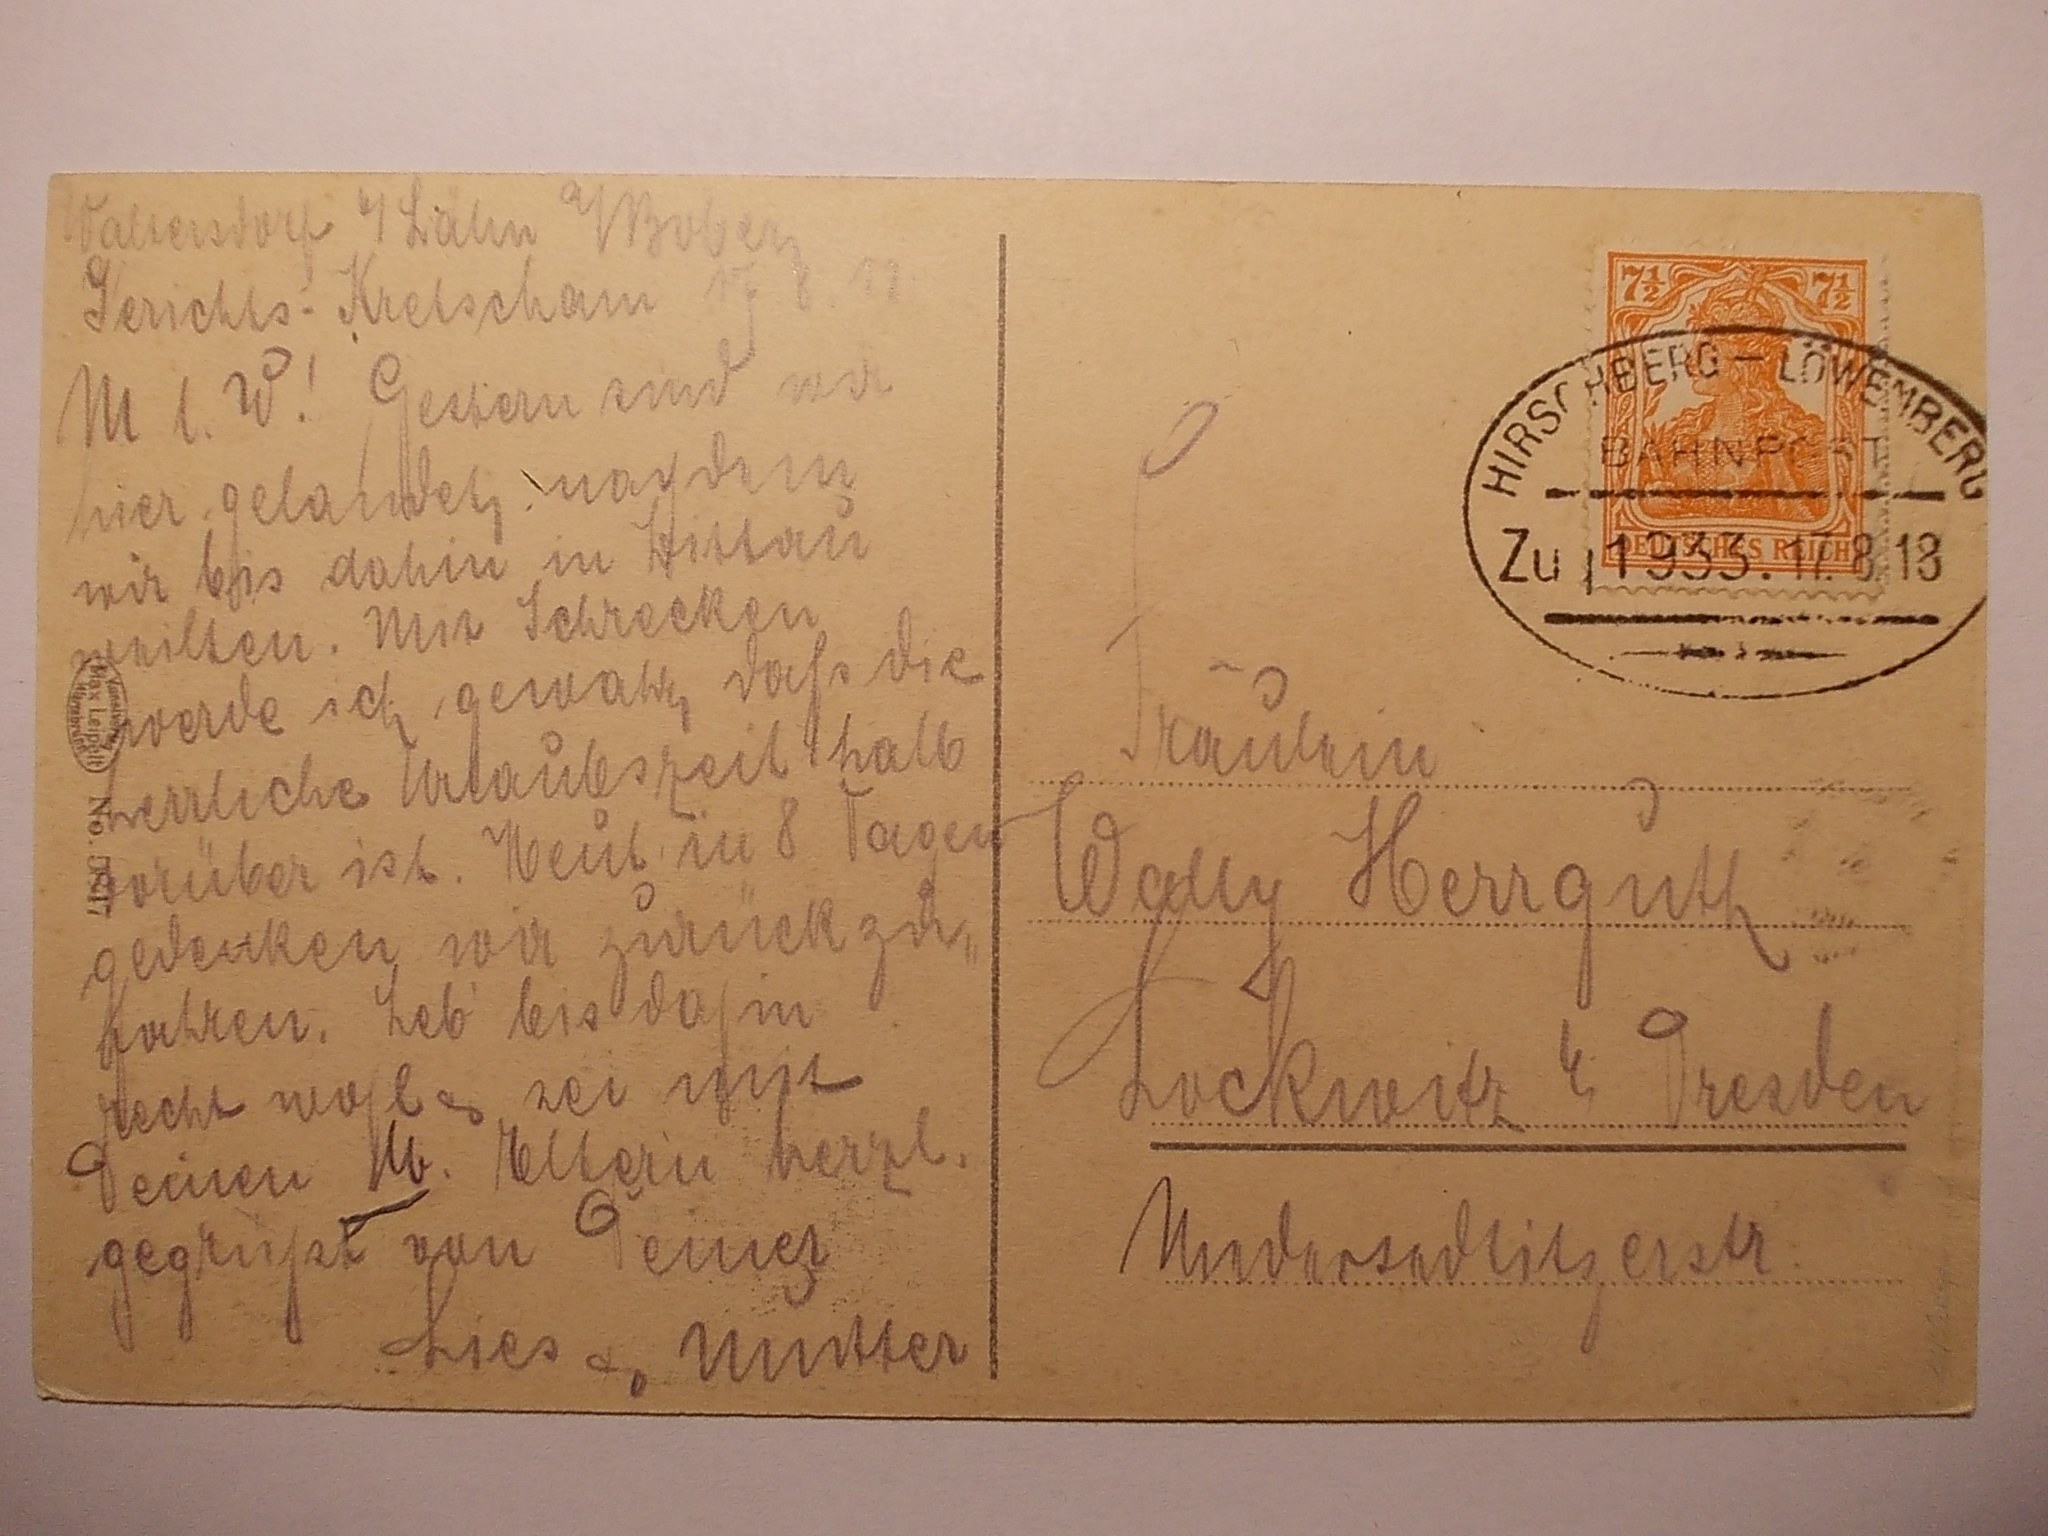 Waltersdorf b/ Lähn a/Bober,
Gerichts-Kretscham 17.8.18.
M l. W! Gestern sind wir
hier gelandet, nachdem
wir bis dahin in Zittau
weilten. Mit Schrecken
werde ich gewahr, daß die
herrliche Urlaubszeit halb
vorüber ist. Heut in 8 Tagen
gedenken wir zurückzu-
fahren. Leb' bis dahin
recht wohl & sei mit
Deinen lb. Eltern herzl.
gegrüßt von Deiner
Lies & Mutter
Max Leipelt
No.
7½ 7½
DEUTSCHES REICH
HIRSCHBERG - LÖWENBERG
BAHNPOST
Zug 1933. 17.8.18
Fräulein
Wally Herrguth
Lockwitz b/ Dresden
Niedersedlitzerstr.